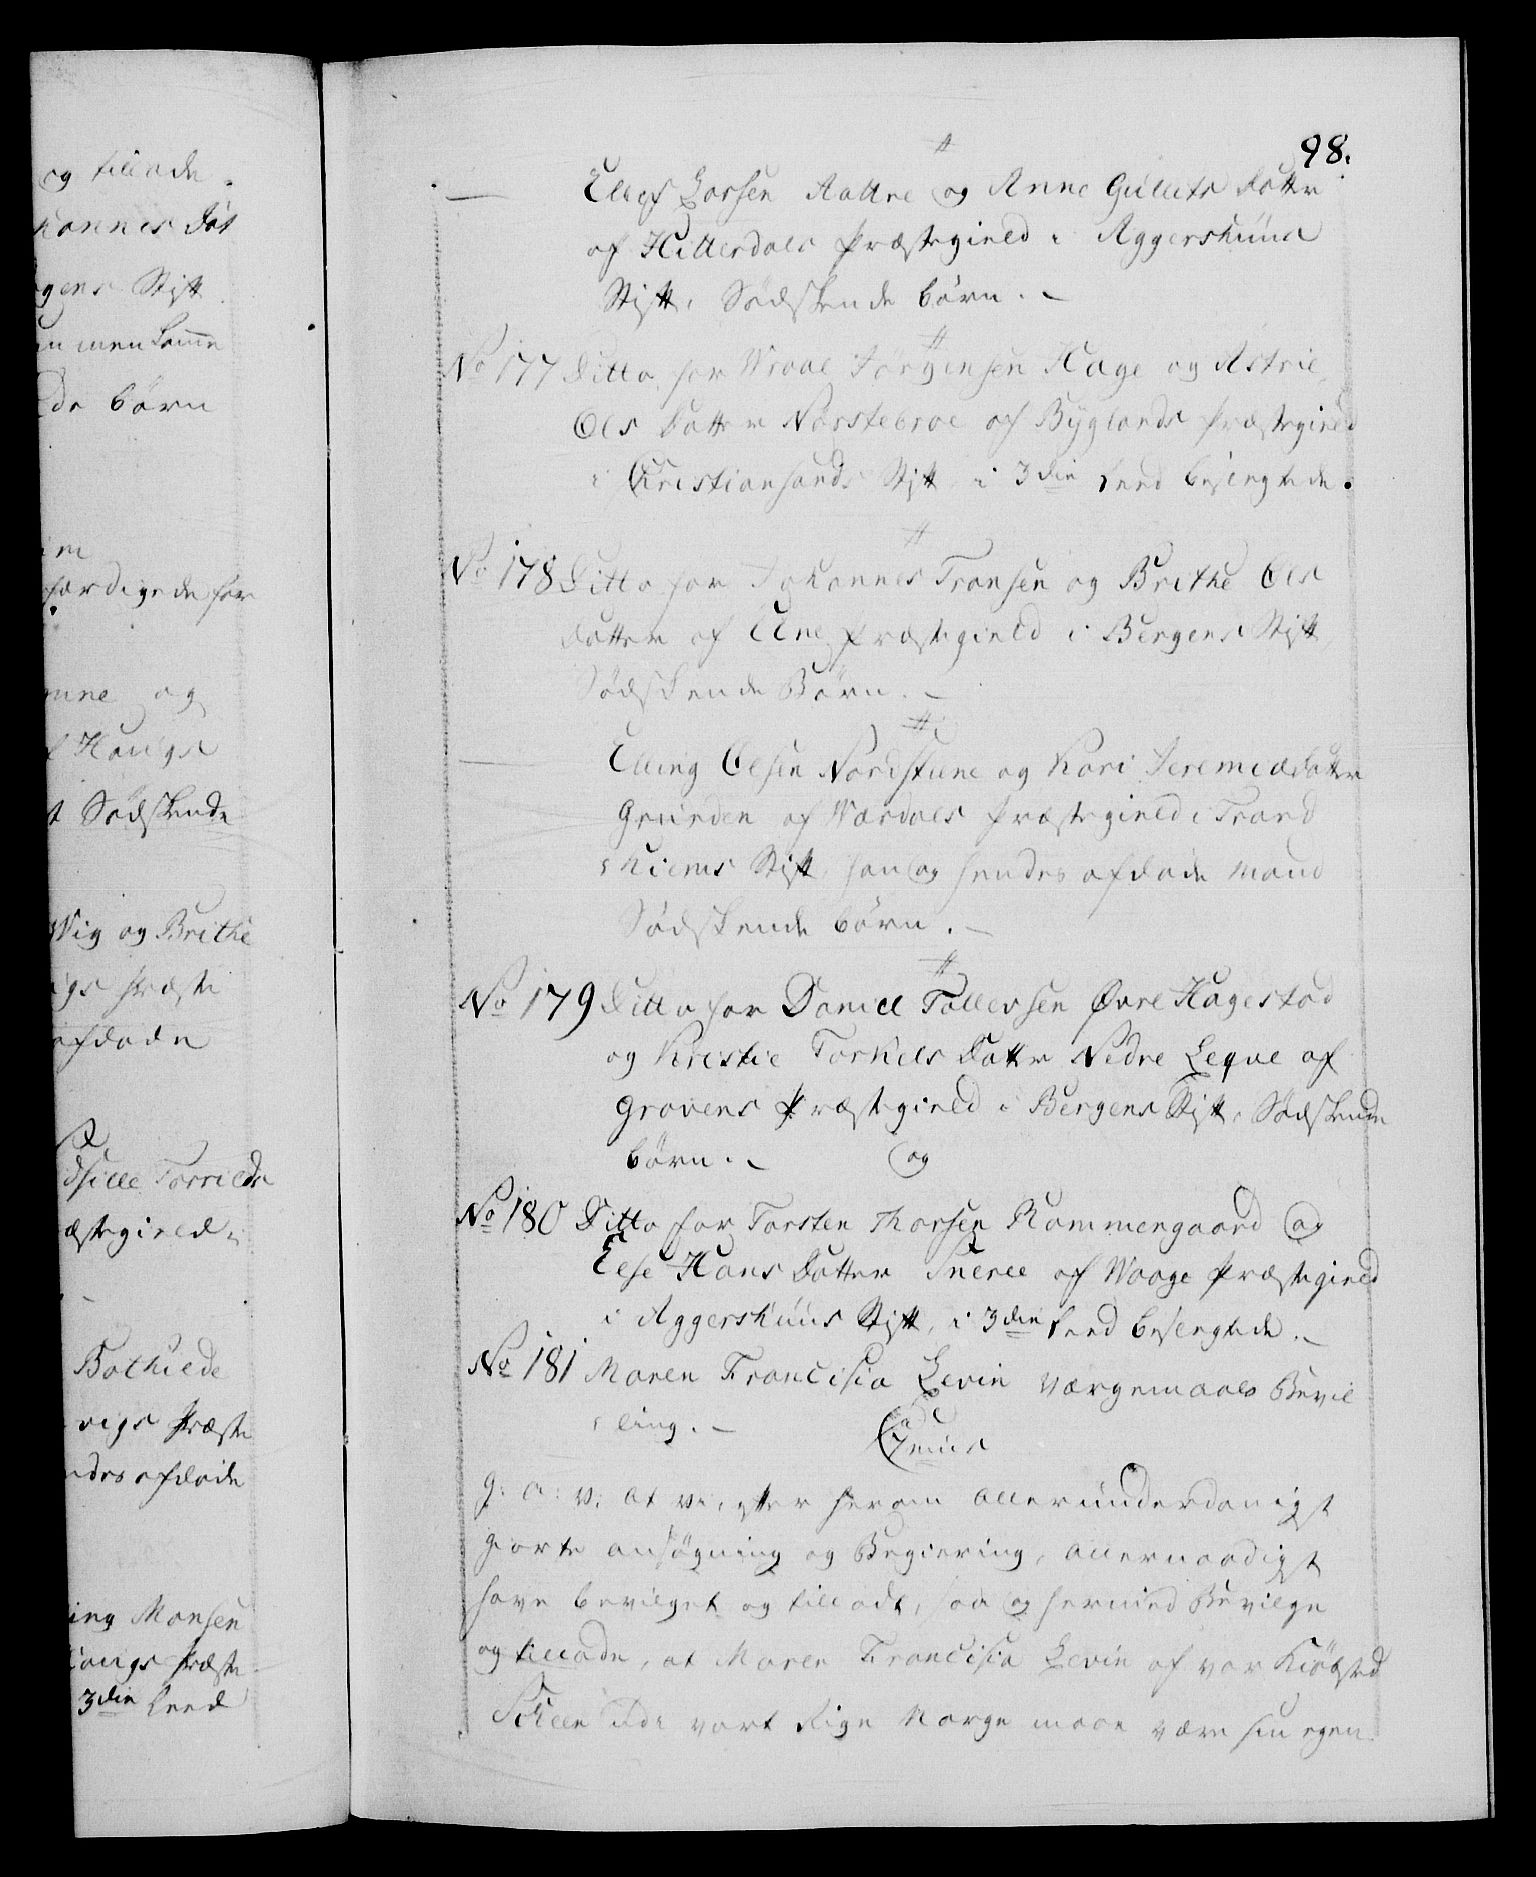 og tillade.
hannes Dat
gens Stift
de børn
færdigede for
og
f Haugs
t Sødskende
Wig og Brithe
igs Præste
afdøde
Torrilds
æstegield i
Bothilde
vigs Præste
ndes afdøde
ing Monsen
Præste
3die Leed
98.
Ellef Larsen Aattne og Anne Gullits Datter
af Hitterdals Præstegield i Aggershuus
Stift, Sødskende børn.
No 177 Ditto for Wraal Jorgensen Hage og Astrie
Ols Datter Norstebroe af Byglands Præstegield
i Christiansands Stift, i 3die Leed besvogrede.
No 178 Ditto for Johannes Transen og Brithe Ols
Datter af Præstegield i Bergens Stift,
Sødskende Børn.
Elling Olsen Nordstuene og Kari Jeremiædatter
Grunden af Wærdals Præstegield i Trond
hiems Stift, han og hendes afdøde Mand
Sødskende børn.
No 179 Ditto for Daniel Tollevsen Øvre Hagestad
og Kristie Torkels Datter Nedre Leqve af
Gravens Præstegield i Bergens Stift, Sødskende
børn. og
No 180 Ditto for Torsten Thorsen Rammengaard og
Else Hans Datter Snerle af Waage Præstegield
i Aggershuus Stift, i 3die Leed besvogrede.
No 181 Maren Francisia Levin Værgemaals Bevil
ling.
C 7mus
G: A: V: At vi, efter herom allerunderdanigst
giorte ansøgning og Begiering, allernaadigst
have bevilget og tilladt, saa og hermed Bevilge
og tillade, at Maren Francisia Levin af vor Kiøbsted
Scheen udi vort Rige Norge maae være sin egen